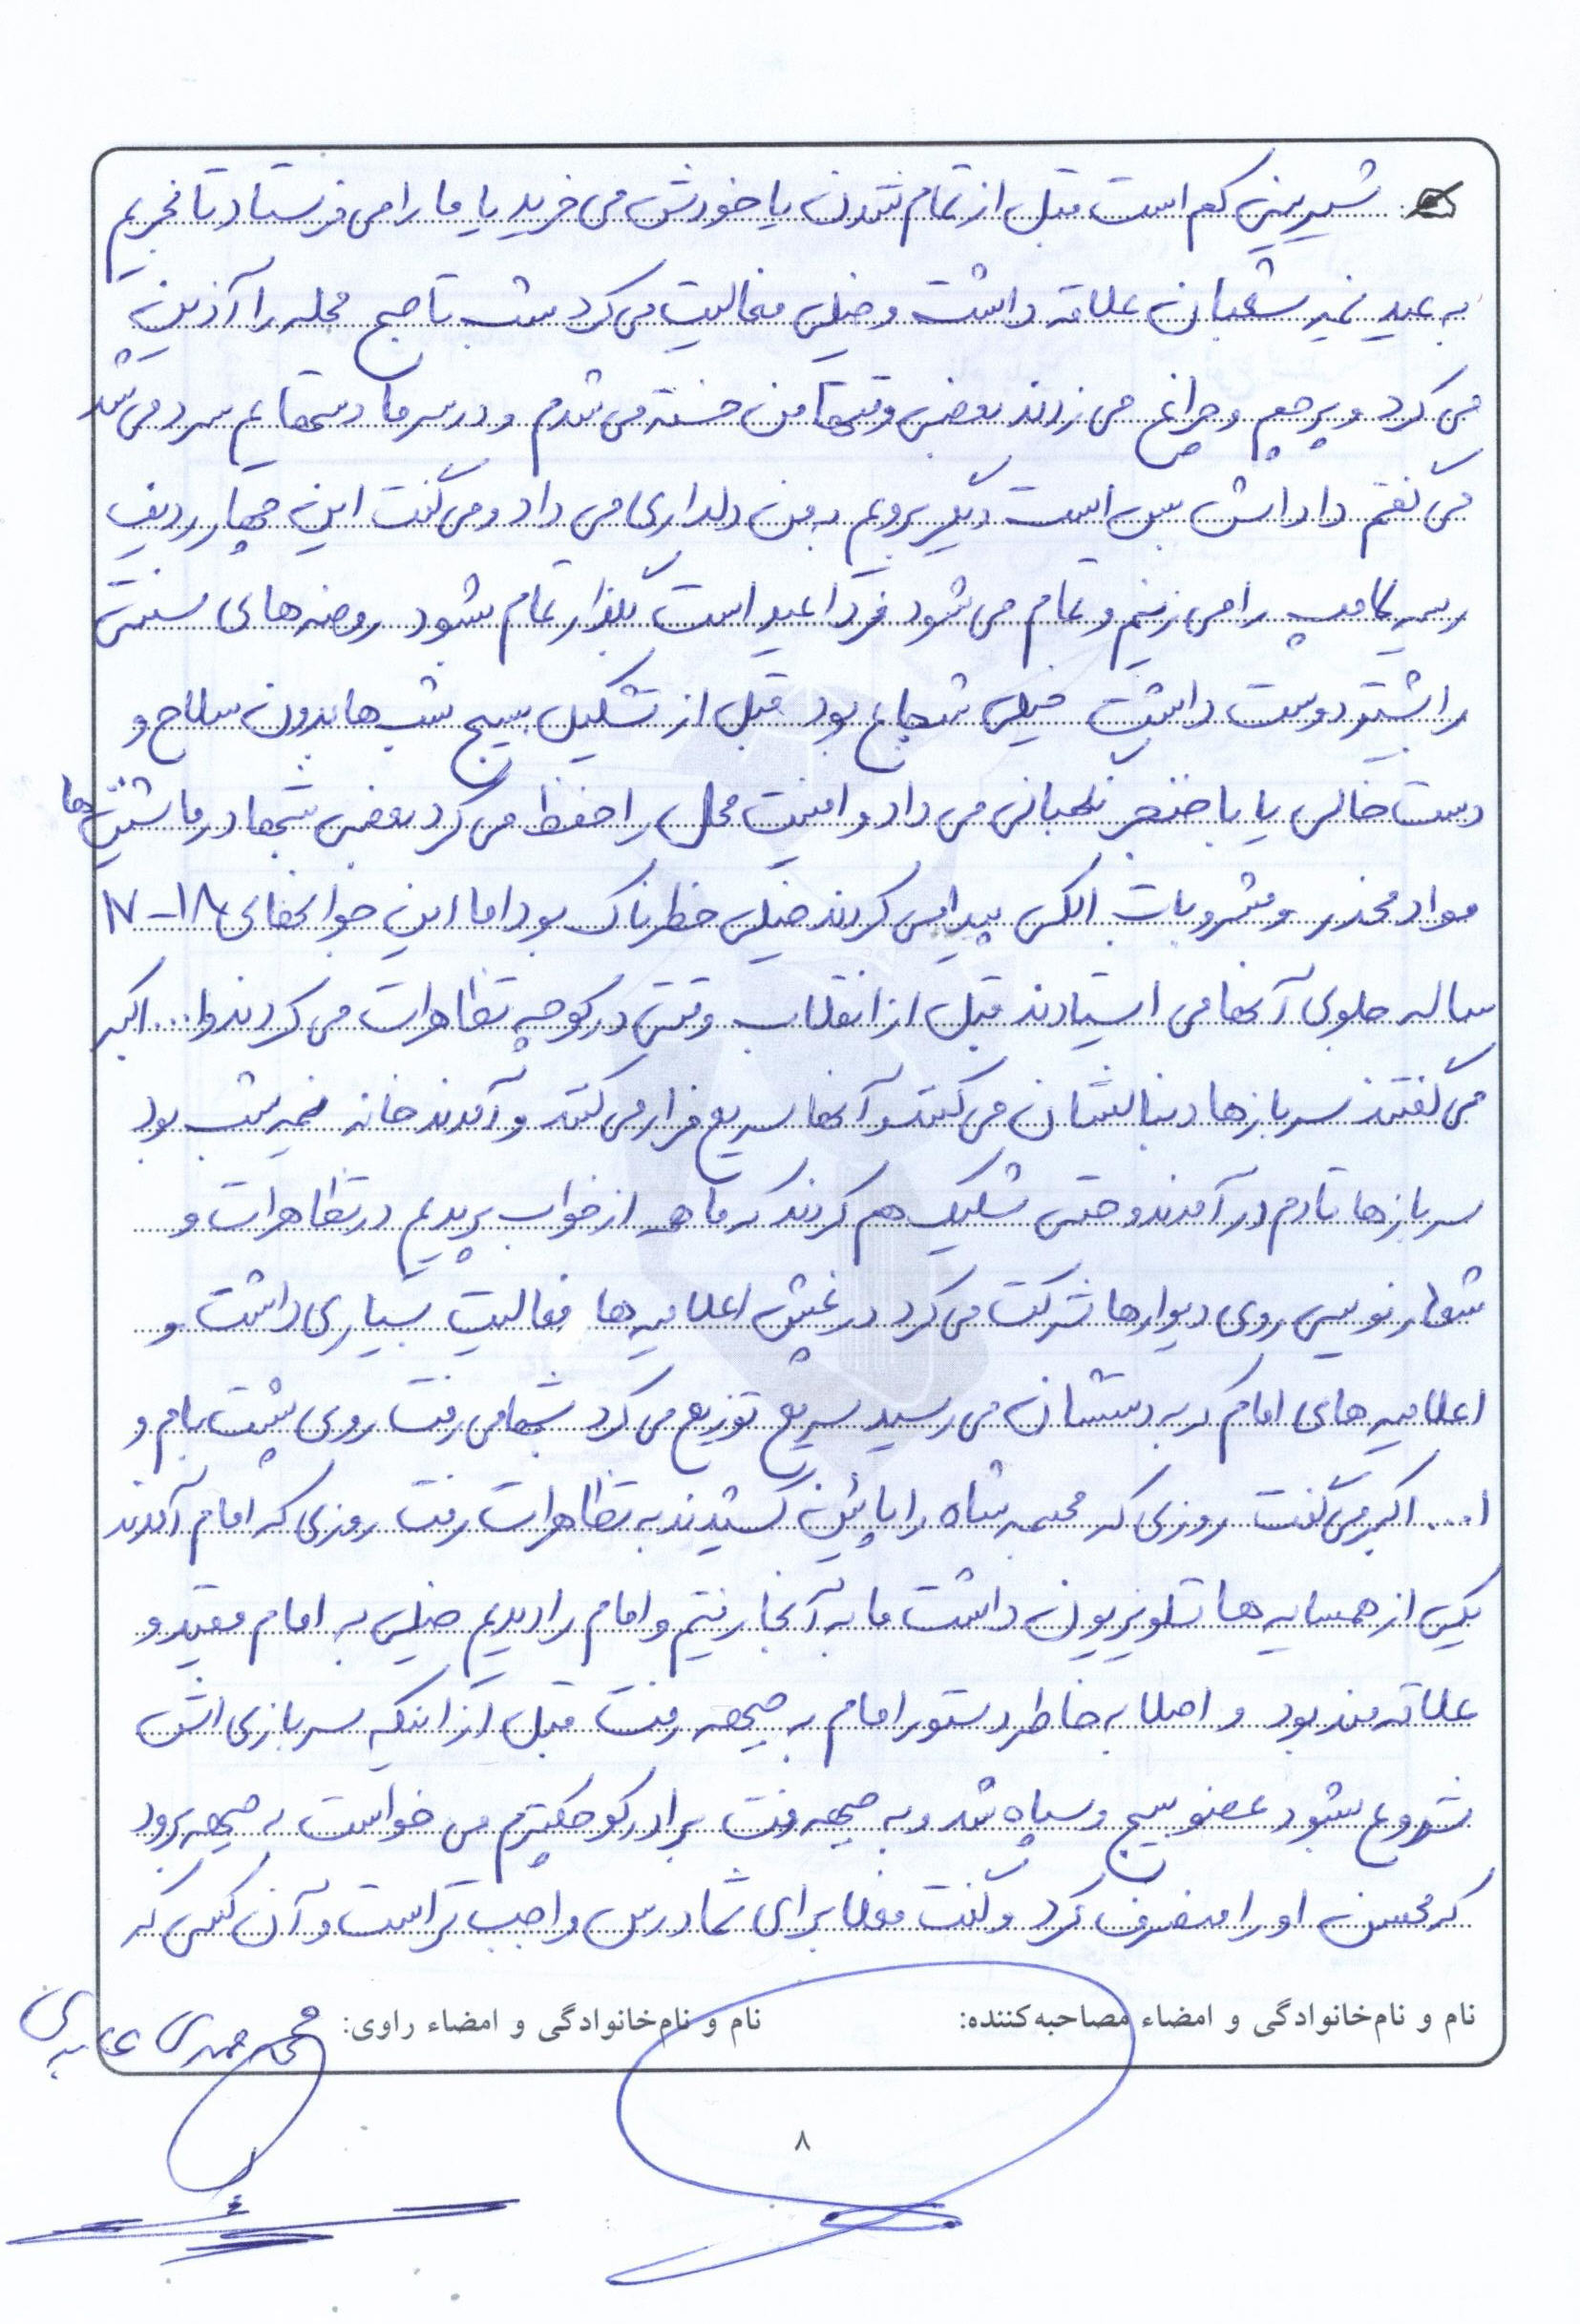 شیرینی کم است قبل از تمام شدن یا خودش می خرید یا ما را می فرستاد تا بخریم
به عید نیمه شعبان علاقه داشت و خیلی فعالیت می کرد شب تا صبح محله را آذین
می کرد و پرچم و چراغ می زدند بعضی وقتها من خسته می شدم و در سرما دستهایم سرد می شد
می گفتم داداش بس است دیگر برویم به من دلداری می داد و می گفت این چهار ردیف
ریسه لامپ را می زنیم و تمام می شود فردا عید است بگذار تمام شود روضه های سنتی
را بیشتر دوست داشت خیلی شجاع بود قبل از تشکیل بسیج شب ها بدون سلاح و
دست خالی یا با خنجر نگهبانی می داد و امنیت محل را حفظ می کرد بعضی شبها در ماشین ها
مواد مخدر و مشروبات الکلی پیدا می کردند خیلی خطرناک بود اما این جوانهای ۱۸-۱۷
ساله جلوی آنها می ایستادند قبل از انقلاب وقتی در کوچه تظاهرات می کردند و ا... اکبر
می گفتند سربازها دنبالشان می کنند و آنها سریع فرار می کنند و آمدند خانه نیمه شب بود
سربازها تا دم در آمدند و حتی شلیک هم کردند که ما همه از خواب پریدیم در تظاهرات و
شعار نویسی روی دیوارها شرکت می کرد در پخش اعلامیه ها فعالیت بسیاری داشت و
اعلامیه های امام که به دستشان می رسید سریع توزیع می کرد شبها می رفت روی پشت بام و
ا... اکبر می گفت روزی که مجسمه شاه را پائین کشیدند به تظاهرات رفت روزی که امام آمدند
یکی از همسایه ها تلویزیون داشت ما به آنجا رفتیم و امام را دیدیم خیلی به امام مقید و
علاقه مند بود و اصلا به خاطر دستور امام به جبهه رفت قبل از اینکه سربازی اش
شروع شود عضو بسیج و سپاه شد و به جبهه رفت برادر کوچکترم می خواست به جبهه برود
که محسن او را منصرف کرد و گفت فعلا برای شما درس واجب تر است و آن کسی که
نام و نام‌خانوادگی و امضاء مصاحبه‌کننده: نام و نام‌خانوادگی و امضاء راوی: محمد مهدی عابدی
۸